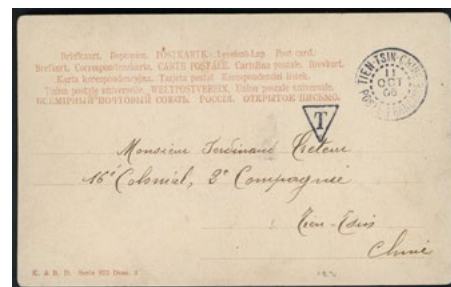 Briefkaart. Dopisnice. POSTKARTE. Levelezö-Lap. Post card.
Brefkort. Correspondenzkarte. CARTE POSTALE. Cartolina postale. Brevkort.
Karta korespondencyjna. Tarjeta postal. Korespondenční lístek.
Union postale universelle. WELTPOSTVEREIN. Union postale universale.
ВСЕМІРНЫЙ ПОЧТОВЫЙ СОЮЗЪ. РОССІЯ. ОТКРЫТОЕ ПИСЬМО.
TIEN-TSIN-CHINE
11
OCT
T
Monsieur Ferdinand
16e Colonial, 2e Compagnie
Tien-Tsin
Chine
K. & B. D. Serie